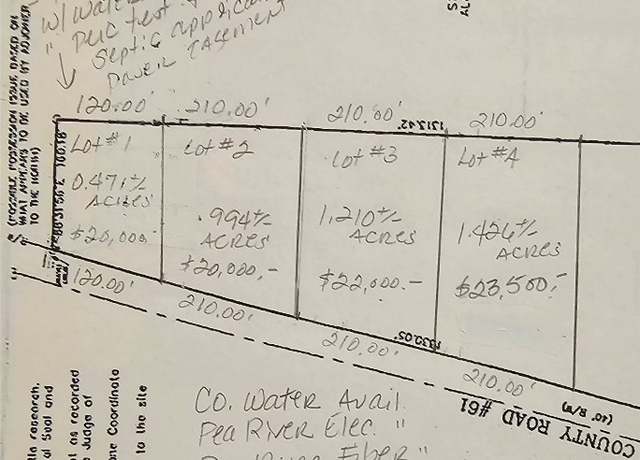 w/ Water
" Perc test &
Septic applica
Power Easement
(POSSIBLE POSSESSION ISSUE, BASED ON
WHAT APPEARS TO BE USED BY ADJOINER
TO THE NORTH)
120.00' 210.00' 210.00' 210.00'
1217.42'
Lot #1 Lot #2 Lot #3 Lot #4
0.471+/- ACRES
$20,000
.994+/- ACRES
$20,000,-
1.210+/- ACRES
$22,000.-
1.426+/- ACRES
$23,500,-
120.00'
210.00'
210.00'
210.00'
1330.05'
COUNTY ROAD #61
(40' R/W)
Co. Water Avail.
Pea River Elec. "
Fiber "
research,
Seal and
as recorded
Judge of
Coordinate
to the site